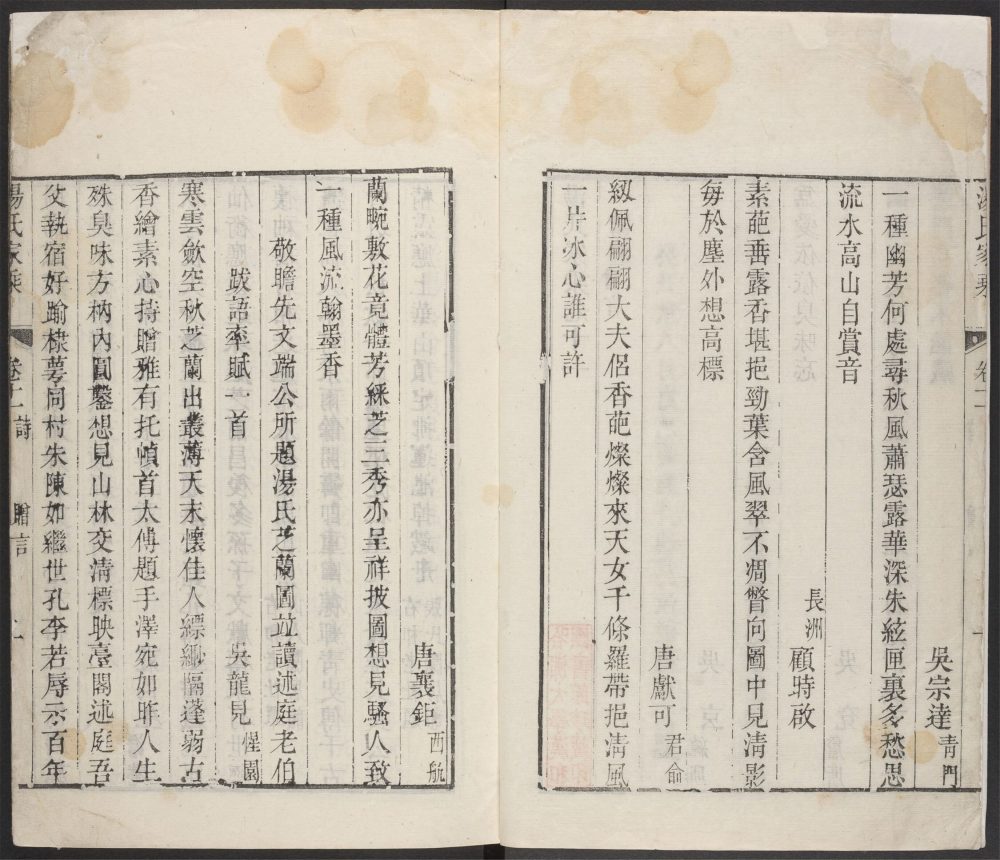 湯氏家乘
卷十二
吳宗達青門
一種幽芳何處尋秋風蕭瑟露華深朱絃匣裏多愁思
流水高山自賞音
長洲 顧時啟
素葩垂露香堪挹勁葉含風翠不凋瞥向圖中見清影
每於塵外想高標
唐獻可君俞
紉佩翩翩大夫侶香葩燦燦來天女千條羅帶挹清風
一片冰心誰可許
唐襄鉅西航
蘭畹敷花竟體芳綵芝三秀亦呈祥披圖想見騷人致
一種風流翰墨香
敬瞻先文端公所題湯氏芝蘭圖竝讀述庭老伯
跋語率賦一首 吳龍見惺園
寒雲斂空秋芝蘭出叢薄天末懷佳人縹緲隔蓬弱古
香繪素心持贈雅有托幀首太傅題手澤宛如昨人生
殊臭味方枘內圓鑿想見山林交清標映臺閣述庭吾
父執宿好踰棣萼同村朱陳如繼世孔李若辱示百年
湯氏家乘
卷十二詩
贈言
二